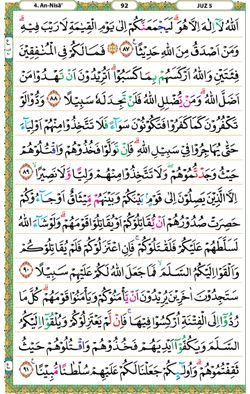 4. An-Nisā'
92
JUZ 5
اللّٰهُ لَآ اِلٰهَ اِلَّا هُوَۗ لَيَجْمَعَنَّكُمْ اِلٰى يَوْمِ الْقِيٰمَةِ لَا رَيْبَ فِيْهِۗ
وَمَنْ اَصْدَقُ مِنَ اللّٰهِ حَدِيْثًا ۝٨٧ فَمَا لَكُمْ فِى الْمُنٰفِقِيْنَ
فِئَتَيْنِ وَاللّٰهُ اَرْكَسَهُمْ بِمَا كَسَبُوْاۗ اَتُرِيْدُوْنَ اَنْ تَهْدُوْا مَنْ
اَضَلَّ اللّٰهُۗ وَمَنْ يُّضْلِلِ اللّٰهُ فَلَنْ تَجِدَ لَهٗ سَبِيْلًا ۝٨٨ وَدُّوْا لَوْ
تَكْفُرُوْنَ كَمَا كَفَرُوْا فَتَكُوْنُوْنَ سَوَاۤءً فَلَا تَتَّخِذُوْا مِنْهُمْ اَوْلِيَاۤءَ
حَتّٰى يُهَاجِرُوْا فِيْ سَبِيْلِ اللّٰهِۗ فَاِنْ تَوَلَّوْا فَخُذُوْهُمْ وَاقْتُلُوْهُمْ
حَيْثُ وَجَدْتُّمُوْهُمْۖ وَلَا تَتَّخِذُوْا مِنْهُمْ وَلِيًّا وَّلَا نَصِيْرًا ۝٨٩
اِلَّا الَّذِيْنَ يَصِلُوْنَ اِلٰى قَوْمٍۢ بَيْنَكُمْ وَبَيْنَهُمْ مِّيْثَاقٌ اَوْ جَاۤءُوْكُمْ
حَصِرَتْ صُدُوْرُهُمْ اَنْ يُّقَاتِلُوْكُمْ اَوْ يُقَاتِلُوْا قَوْمَهُمْۗ وَلَوْ شَاۤءَ اللّٰهُ
لَسَلَّطَهُمْ عَلَيْكُمْ فَلَقَاتَلُوْكُمْۚ فَاِنِ اعْتَزَلُوْكُمْ فَلَمْ يُقَاتِلُوْكُمْ
وَاَلْقَوْا اِلَيْكُمُ السَّلَمَۙ فَمَا جَعَلَ اللّٰهُ لَكُمْ عَلَيْهِمْ سَبِيْلًا ۝٩٠
سَتَجِدُوْنَ اٰخَرِيْنَ يُرِيْدُوْنَ اَنْ يَّأْمَنُوْكُمْ وَيَأْمَنُوْا قَوْمَهُمْۗ كُلَّ مَا
رُدُّوْٓا اِلَى الْفِتْنَةِ اُرْكِسُوْا فِيْهَاۚ فَاِنْ لَّمْ يَعْتَزِلُوْكُمْ وَيُلْقُوْٓا اِلَيْكُمُ
السَّلَمَ وَيَكُفُّوْٓا اَيْدِيَهُمْ فَخُذُوْهُمْ وَاقْتُلُوْهُمْ حَيْثُ
ثَقِفْتُمُوْهُمْۗ وَاُولٰۤىِٕكُمْ جَعَلْنَا لَكُمْ عَلَيْهِمْ سُلْطٰنًا مُّبِيْنًا ۝٩١